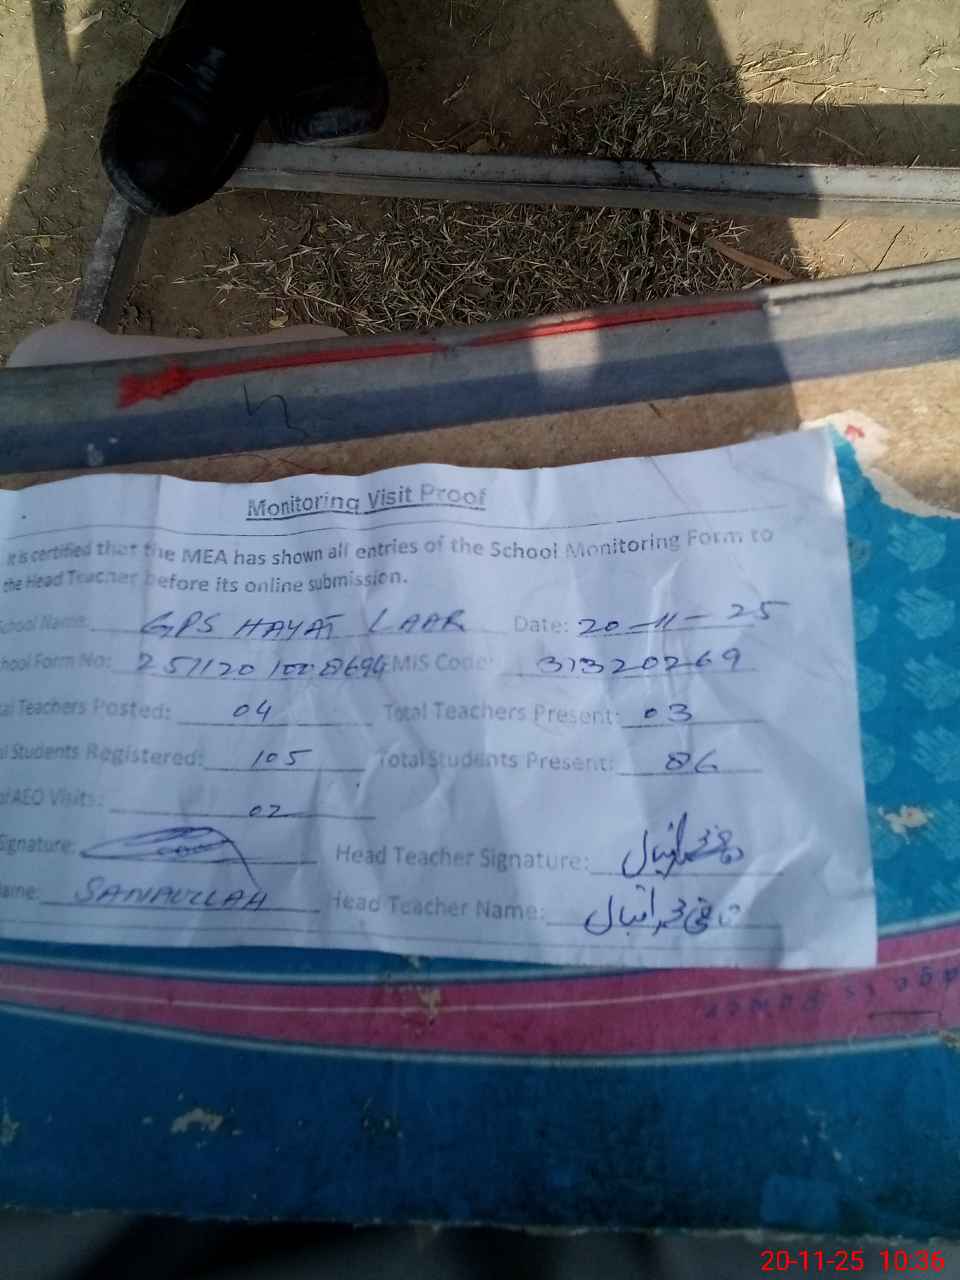 Monitoring Visit Proof
It is certified that the MEA has shown all entries of the School Monitoring Form to
the Head Teacher before its online submission.
chool Name: GPS HAYAT LAAR Date: 20-11-25
hool Form No: EMIS Code: 31320269
al Teachers Posted: 04 Total Teachers Present: 03
al Students Registered: 105 Total Students Present: 86
of AEO Visits: 02
Signature: Head Teacher Signature:
ame: SANAULLAH Head Teacher Name: محمد اقبال
20-11-25 10:36